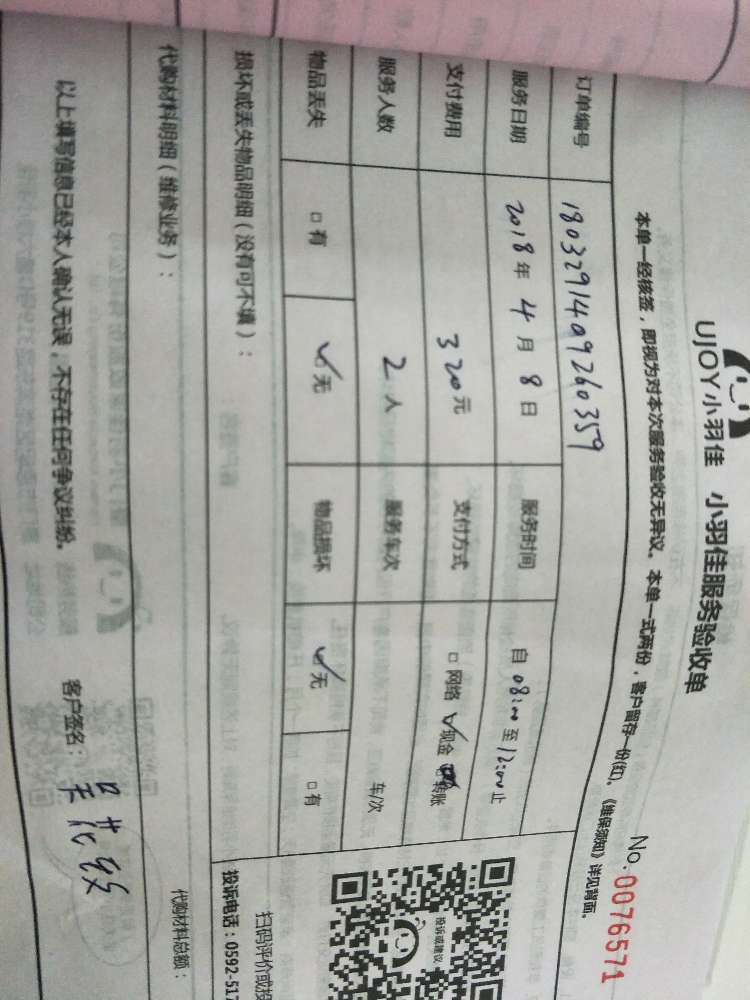 UJOY小羽佳 小羽佳服务验收单
No.0076571
本单一经核签，即视为对本次服务验收无异议。本单一式两份，客户留存一份(红)。《维保须知》详见背面。
订单编号 1803291409260359
服务日期 2018年4月8日 服务时间 自08:00至12:00止
支付费用 320元 支付方式 □网络 ✓现金 转账
服务人数 2人 服务车次 车/次
物品丢失 □有 ✓无 物品损坏 ✓无 □有
损坏或丢失物品明细（没有可不填）：
投诉或建议
扫码评价或投
投诉电话：0592-517
代购材料明细（维修业务）：
代购材料总额：
以上填写信息已经本人确认无误，不存在任何争议纠纷。 客户签名：